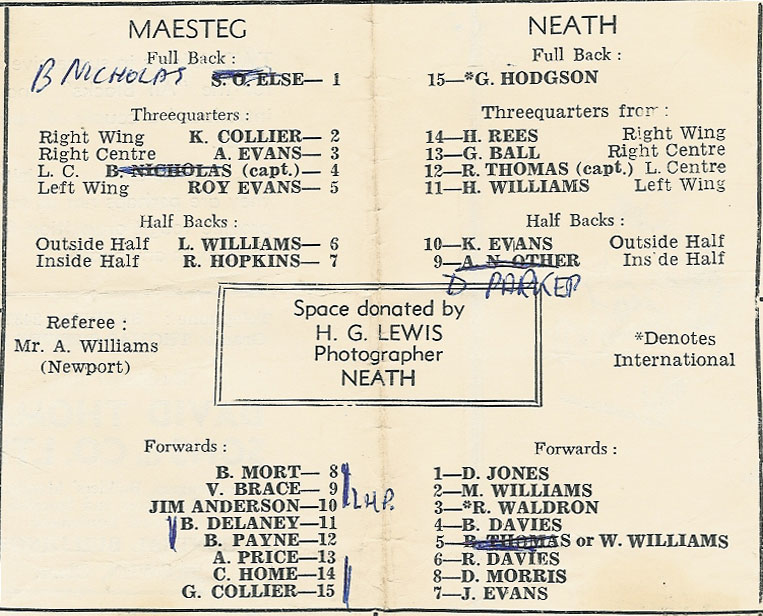 MAESTEG
Full Back :
B NICHOLAS S. O. ELSE— 1
Threequarters :
Right Wing K. COLLIER— 2
Right Centre A. EVANS— 3
L. C. B. NICHOLAS (capt.)— 4
Left Wing ROY EVANS— 5
Half Backs :
Outside Half L. WILLIAMS— 6
Inside Half R. HOPKINS— 7
Referee :
Mr. A. Williams
(Newport)
Forwards :
B. MORT— 8
V. BRACE— 9
JIM ANDERSON—10
B. DELANEY—11
B. PAYNE—12
A. PRICE—13
C. HOME—14
G. COLLIER—15
Space donated by
H. G. LEWIS
Photographer
NEATH
NEATH
Full Back :
15—*G. HODGSON
Threequarters from :
14—H. REES Right Wing
13—G. BALL Right Centre
12—R. THOMAS (capt.) L. Centre
11—H. WILLIAMS Left Wing
Half Backs :
10—K. EVANS Outside Half
9—A. N. OTHER Ins de Half
D PARKER
*Denotes
International
Forwards :
1—D. JONES
2—M. WILLIAMS
3—*R. WALDRON
4—B. DAVIES
5—B. THOMAS or W. WILLIAMS
6—R. DAVIES
8—D. MORRIS
7—J. EVANS